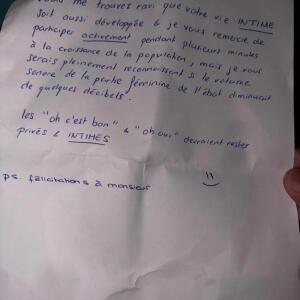 me trouves ravi que votre vie INTIME
soit aussi développée & je vous remercie de
participer activement pendant plusieurs minutes
à la croissance de la population, mais je vous
serais pleinement reconnaissant si le volume
sonore de la partie féminine de l'ébat diminuait
de quelques décibels.
les "oh c'est bon" & "oh oui" devraient rester
privés & INTIMES
ps. félicitations à monsieur